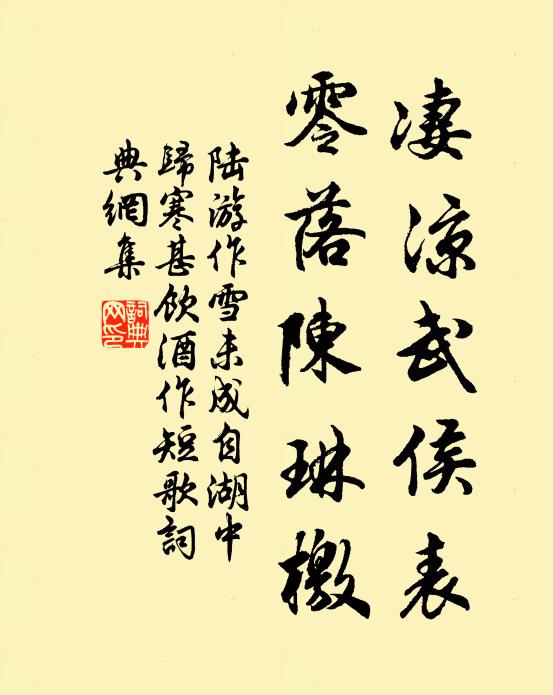 凄涼武侯表
零落陳琳檄
陆游作雪未成自湖中
歸寒甚飲酒作短歌詞
典網集
詞典
网印